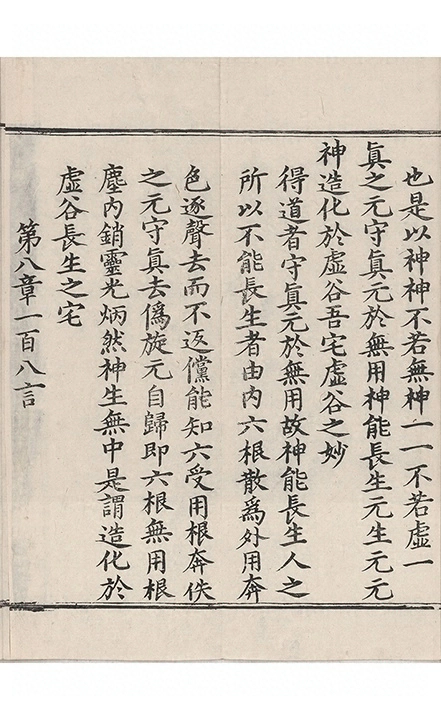 也是以神神不若無神一一不若虛一
眞之元守眞元於無用神能長生元生元元
神造化於虛谷吾宅虛谷之妙
得道者守眞元於無用故神能長生人之
所以不能長生者由内六根散爲外用奔
色逐聲去而不返儻能知六受用根奔佚
之元守眞去僞旋元自歸即六根無用根
塵内銷靈光炳然神生無中是謂造化於
虛谷長生之宅
第八章一百八言